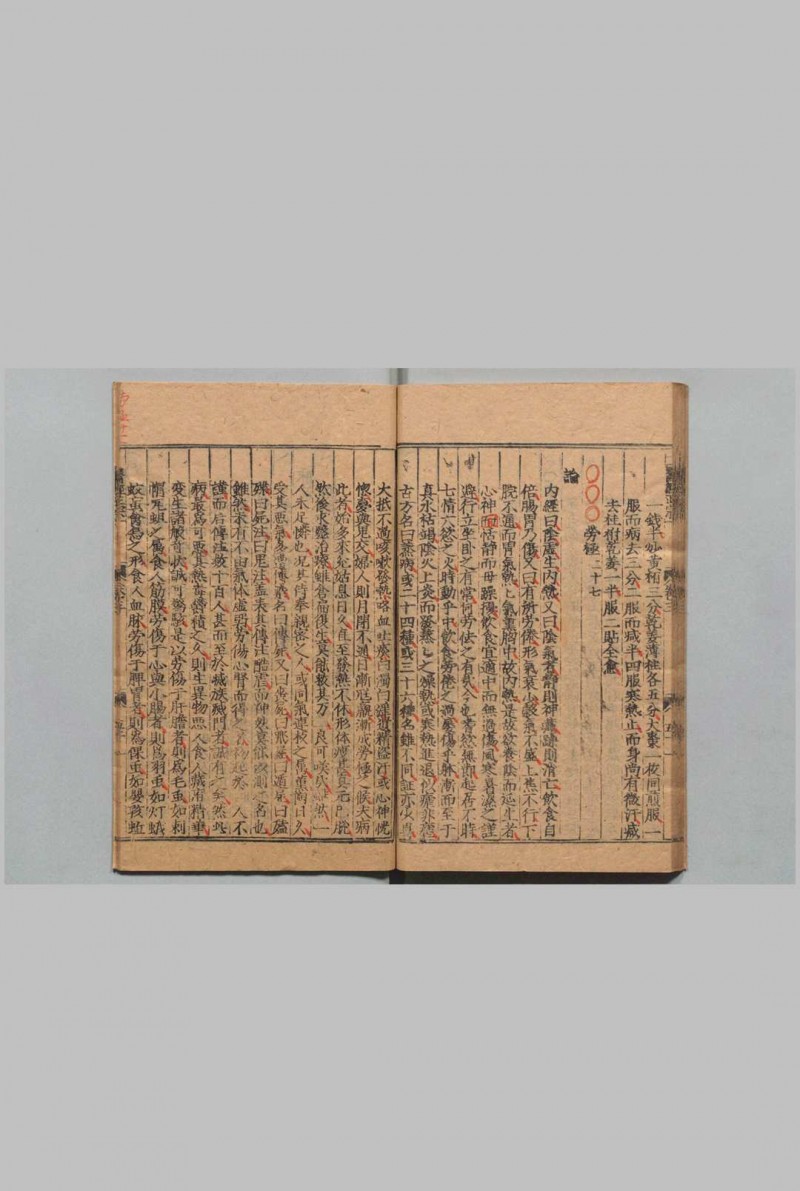 一錢半炒黃栢三分乾姜薄桂各五分大棗一枚同煎服一
服而病去三分二服而減半四服寒熱止而身尚有微汗減
去桂樹乾姜一半服二貼全愈
勞極二十七
論
內經曰陰虛生內熱又曰陰氣者靜則神藏躁則消亡飲食自
倍腸胃乃傷又曰有所勞倦形氣衰少穀氣不盛上焦不行下
脘不通而胃氣熱上氣熏胸中故內熱是故欲養陰而延生者
心神宜恬靜而毋躁擾飲食宜適中而無過傷風寒暑濕之謹
避行立坐卧之有常何勞怯之有哉今也嗜欲無節起居不時
七情六慾之火時動乎中飲食勞倦之過屢傷乎體漸而至于
真水枯竭陰火上炎而發蒸蒸之燥熱或寒熱進退似瘧非瘧
古方名曰蒸病或二十四種或三十六種名雖不同証亦少異
大抵不過咳嗽發熱咯血吐痰白濁白淫遺精盗汗或心神恍
惚夢與鬼交婦人則月閉不通日漸尫羸漸成勞極之候夫病
此者始多不紀姑息日久直至發熱不休形体瘦甚真元已脫
然後求醫治療雖倉扁復生莫能救其万一良可嘆哉雖然一
人未足憐也况其侍奉親密之人或同氣連枝之屬熏陶日久
受其惡氣多遭傳染名曰傳尸又曰喪葬曰飛尸曰遁尸曰殗
殜曰尸注曰鬼注盖表其傳注酷虐而神然莫能窺測之名也
雖然未有不由氣体虛弱勞傷心腎而得之
護而后傳注數十百人甚而至於滅族滅門者誠有之至然此
病最爲可惡其熱毒鬱積之久則生異物惡虫食人臟府精華
變生諸般竒狀誠可驚駭是以勞傷于肝膽者則爲毛虫如刺
蝟瓦蛆之屬食人筋膜勞傷于心與小腸者則爲羽虫如灯蛾
蚊䖟禽鳥之形食人血脉勞傷于脾胃者則爲倮虫如嬰孩蚯